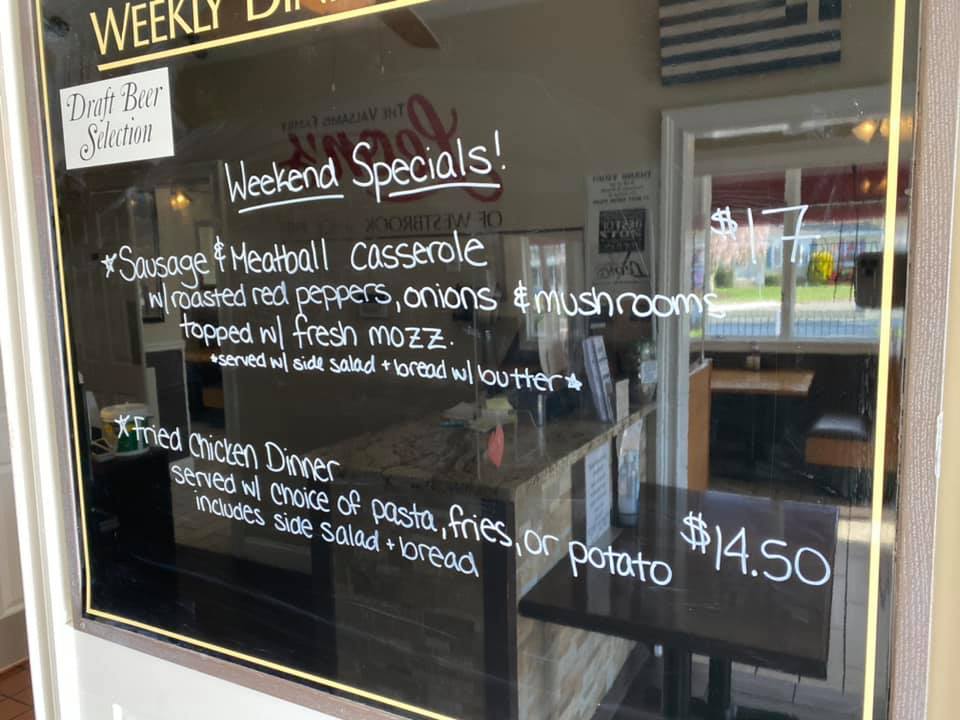 WEEKLY
Draft Beer
Selection
THE VALSAMIS FAMILY
Leon's
OF WESTBROOK
Weekend Specials!
*Sausage & Meatball casserole $17
w/ roasted red peppers, onions & mushrooms
topped w/ fresh mozz.
*served w/ side salad + bread w/ butter*
*Fried Chicken Dinner
served w/ choice of pasta, fries, or potato $14.50
includes side salad + bread